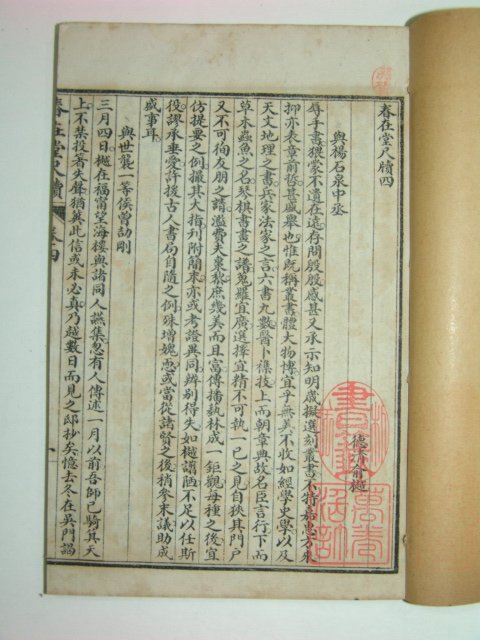 春在堂尺牘四
德清俞樾
與楊石泉中丞
辱手書猥蒙不遺在遠存問殷殷感甚又承示知明歲擬選刻叢書不特嘉惠方來
抑亦表章前哲甚盛舉也惟既稱叢書體大物博宜乎無美不收如經學史學以及
天文地理之書兵家法家之言六書九數醫卜襍技上而朝章典故名臣言行下而
草木蟲魚之名琴棋書畫之譜蒐羅宜廣選擇宜精不可執一己之見自狹其門戶
又不可徇友朋之請濫費夫棗棃庶幾美而且富傳播埶林成一鉅觀每種之後宜
仿提要之例撮其大指列附簡末亦或考證異同辨別得失如樾譾陋不足以任斯
役謬承垂愛許後古人書局自隨之例殊增媿恧或當從諸賢之後稍參末議助成
盛事耳
與世襲一等侯曾劼剛
三月四日樾在福甯望海樓與諸同人讌集忽有人傳述一月以前吾師已騎箕天
上不禁投箸失聲猶冀此信或未必真乃越數日而見之邸抄矣憶去冬在吳門謁
春在堂尺牘 卷四 一